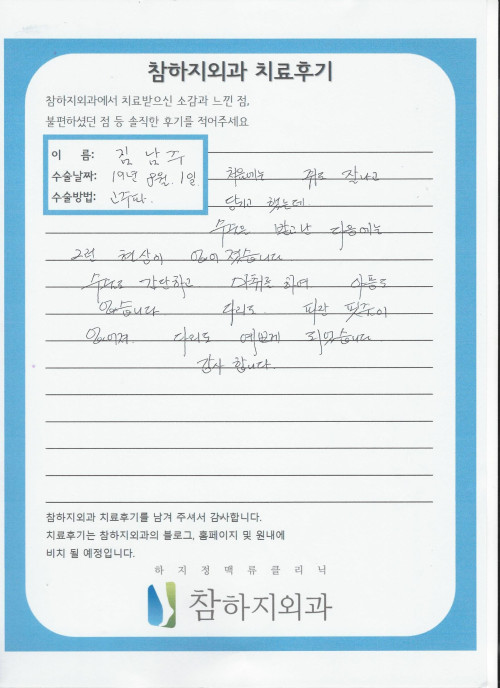 참하지외과 치료후기
참하지외과에서 치료받으신 소감과 느낀 점,
불편하셨던 점 등 솔직한 후기를 적어주세요
이 름: 김 남 주
수술날짜: 19년 8월. 1일
수술방법: 고주파.
처음에는 쥐도 잘나고
당되고 했는데
수술은 받고난 다음에는
그런 현상이 없어 졌습니다
수술도 간단하고 마취를 하여 아픔도
없습니다 다리도. 파란 핏줄이
없어져 다리도 예쁘게 되었습니다.
감사 합니다.
참하지외과 치료후기를 남겨 주셔서 감사합니다.
치료후기는 참하지외과의 블로그, 홈페이지 및 원내에
비치 될 예정입니다.
하지정맥류클리닉
참하지외과